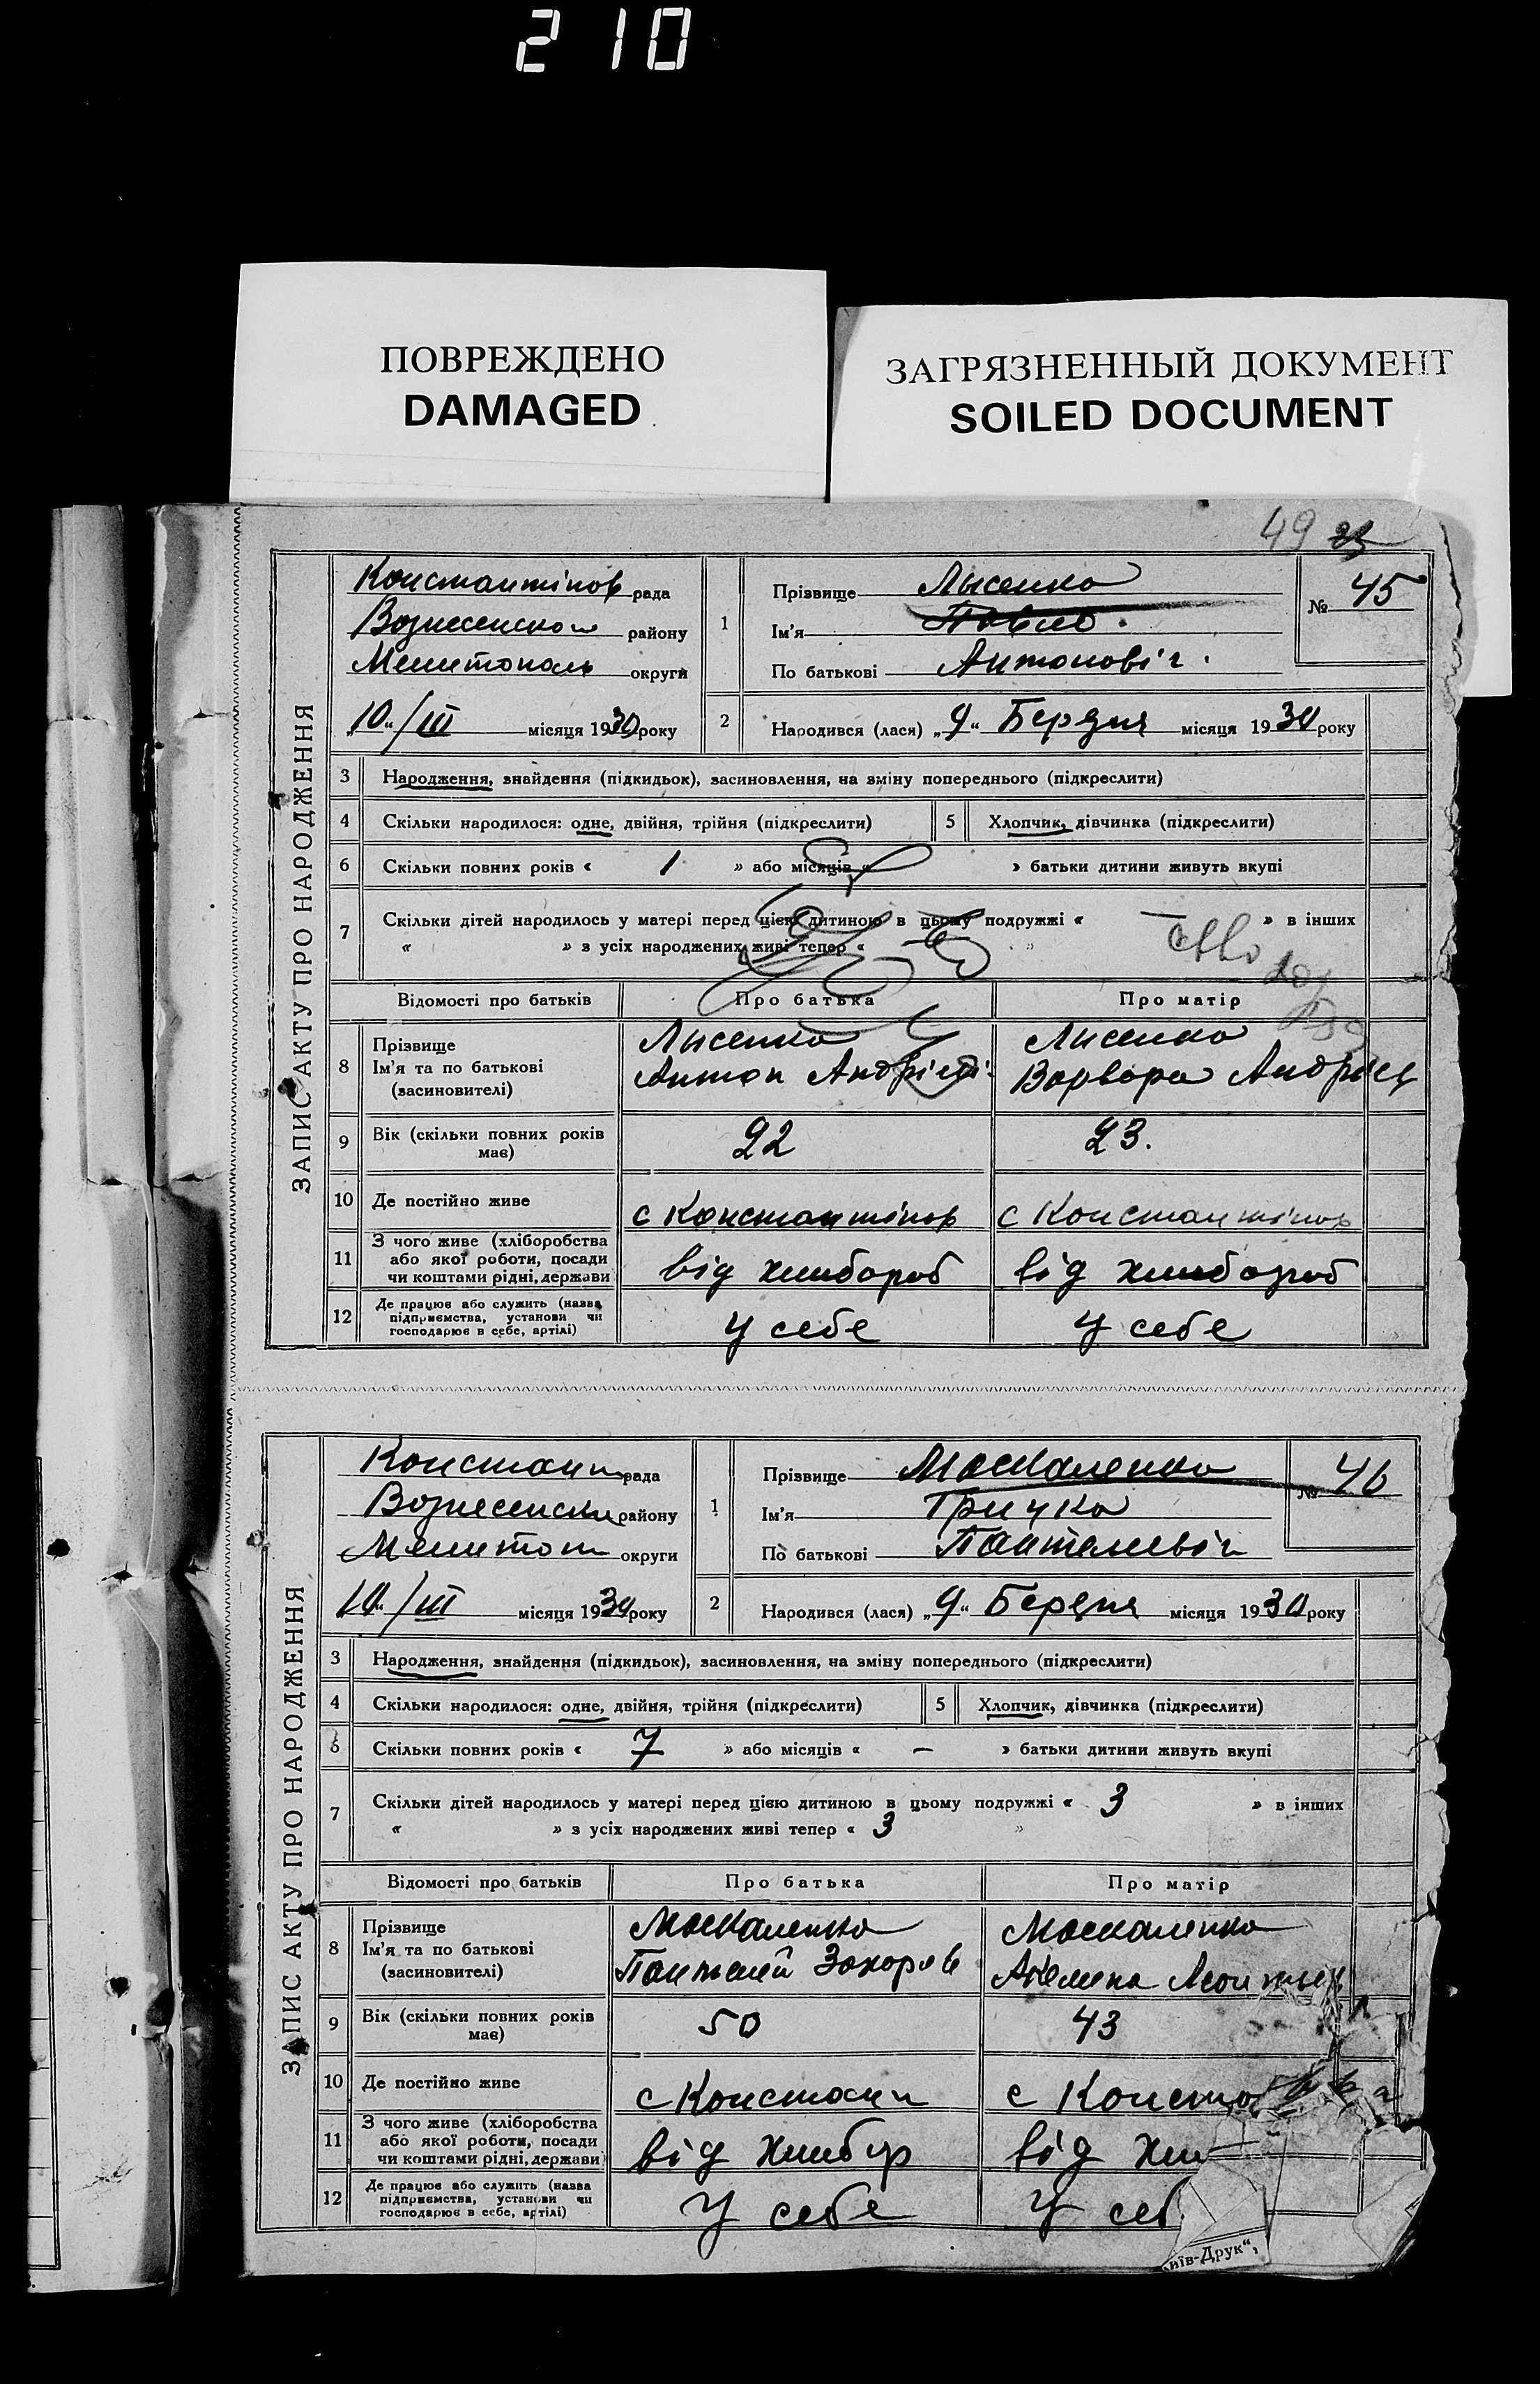 210
ПОВРЕЖДЕНО
DAMAGED
ЗАГРЯЗНЕННЫЙ ДОКУМЕНТ
SOILED DOCUMENT
49
ЗАПИС АКТУ ПРО НАРОДЖЕННЯ
Константінов рада
району
округи
„10“/III місяця 1930 року
1
Прізвище Лысенко
Ім'я Павло.
По батькові Антоновіч.
№ 45
2 Народився (лася) „9“ Березня місяця 1930 року
3 Народження, знайдення (підкидьок), засиновлення, на зміну попереднього (підкреслити)
4 Скільки народилося: одне, двійня, трійня (підкреслити)
5 Хлопчик, дівчинка (підкреслити)
6 Скільки повних років « 1 » або місяців « » батьки дитини живуть вкупі
7 Скільки дітей народилось у матері перед цією дитиною в цьому подружжі « — » в інших
« » з усіх народжених живі тепер « »
Відомості про батьків Про батька Про матір
8 Прізвище
Ім'я та по батькові
(засновителі)
Лысенко
Антон
Лисенко
Варвара
9 Вік (скільки повних років
має)
22 23.
10 Де постійно живе
с Константінов с Константінов
11 З чого живе (хліборобства
або якої роботи, посади
чи коштами рідні, держави
від хлибороб від хлибороб
12 Де працює або служить (назва
підприємства, установи чи
господарює в себе, артілі)
у себе у себе
ЗАПИС АКТУ ПРО НАРОДЖЕННЯ
Констант рада
району
округи
„10“/III місяця 1930 року
1
Прізвище Москаленко
Ім'я Гричка
По батькові
№ 46
2 Народився (лася) „9“ Березня місяця 1930 року
3 Народження, знайдення (підкидьок), засиновлення, на зміну попереднього (підкреслити)
4 Скільки народилося: одне, двійня, трійня (підкреслити)
5 Хлопчик, дівчинка (підкреслити)
6 Скільки повних років « 7 » або місяців « — » батьки дитини живуть вкупі
7 Скільки дітей народилось у матері перед цією дитиною в цьому подружжі « 3 » в інших
« » з усіх народжених живі тепер « 3 »
Відомості про батьків Про батька Про матір
8 Прізвище
Ім'я та по батькові
(засиновителі)
Москаленко
Пантелей Захоров
Москаленко
9 Вік (скільки повних років
має)
50 43
10 Де постійно живе
с Констант с
11 З чого живе (хліборобства
або якої роботи, посади
чи коштами рідні, держави
від хлибор від хли
12 Де працює або служить (назва
підприємства, установи чи
господарює в себе, артілі)
у себе у себ
иїв-Друк“,